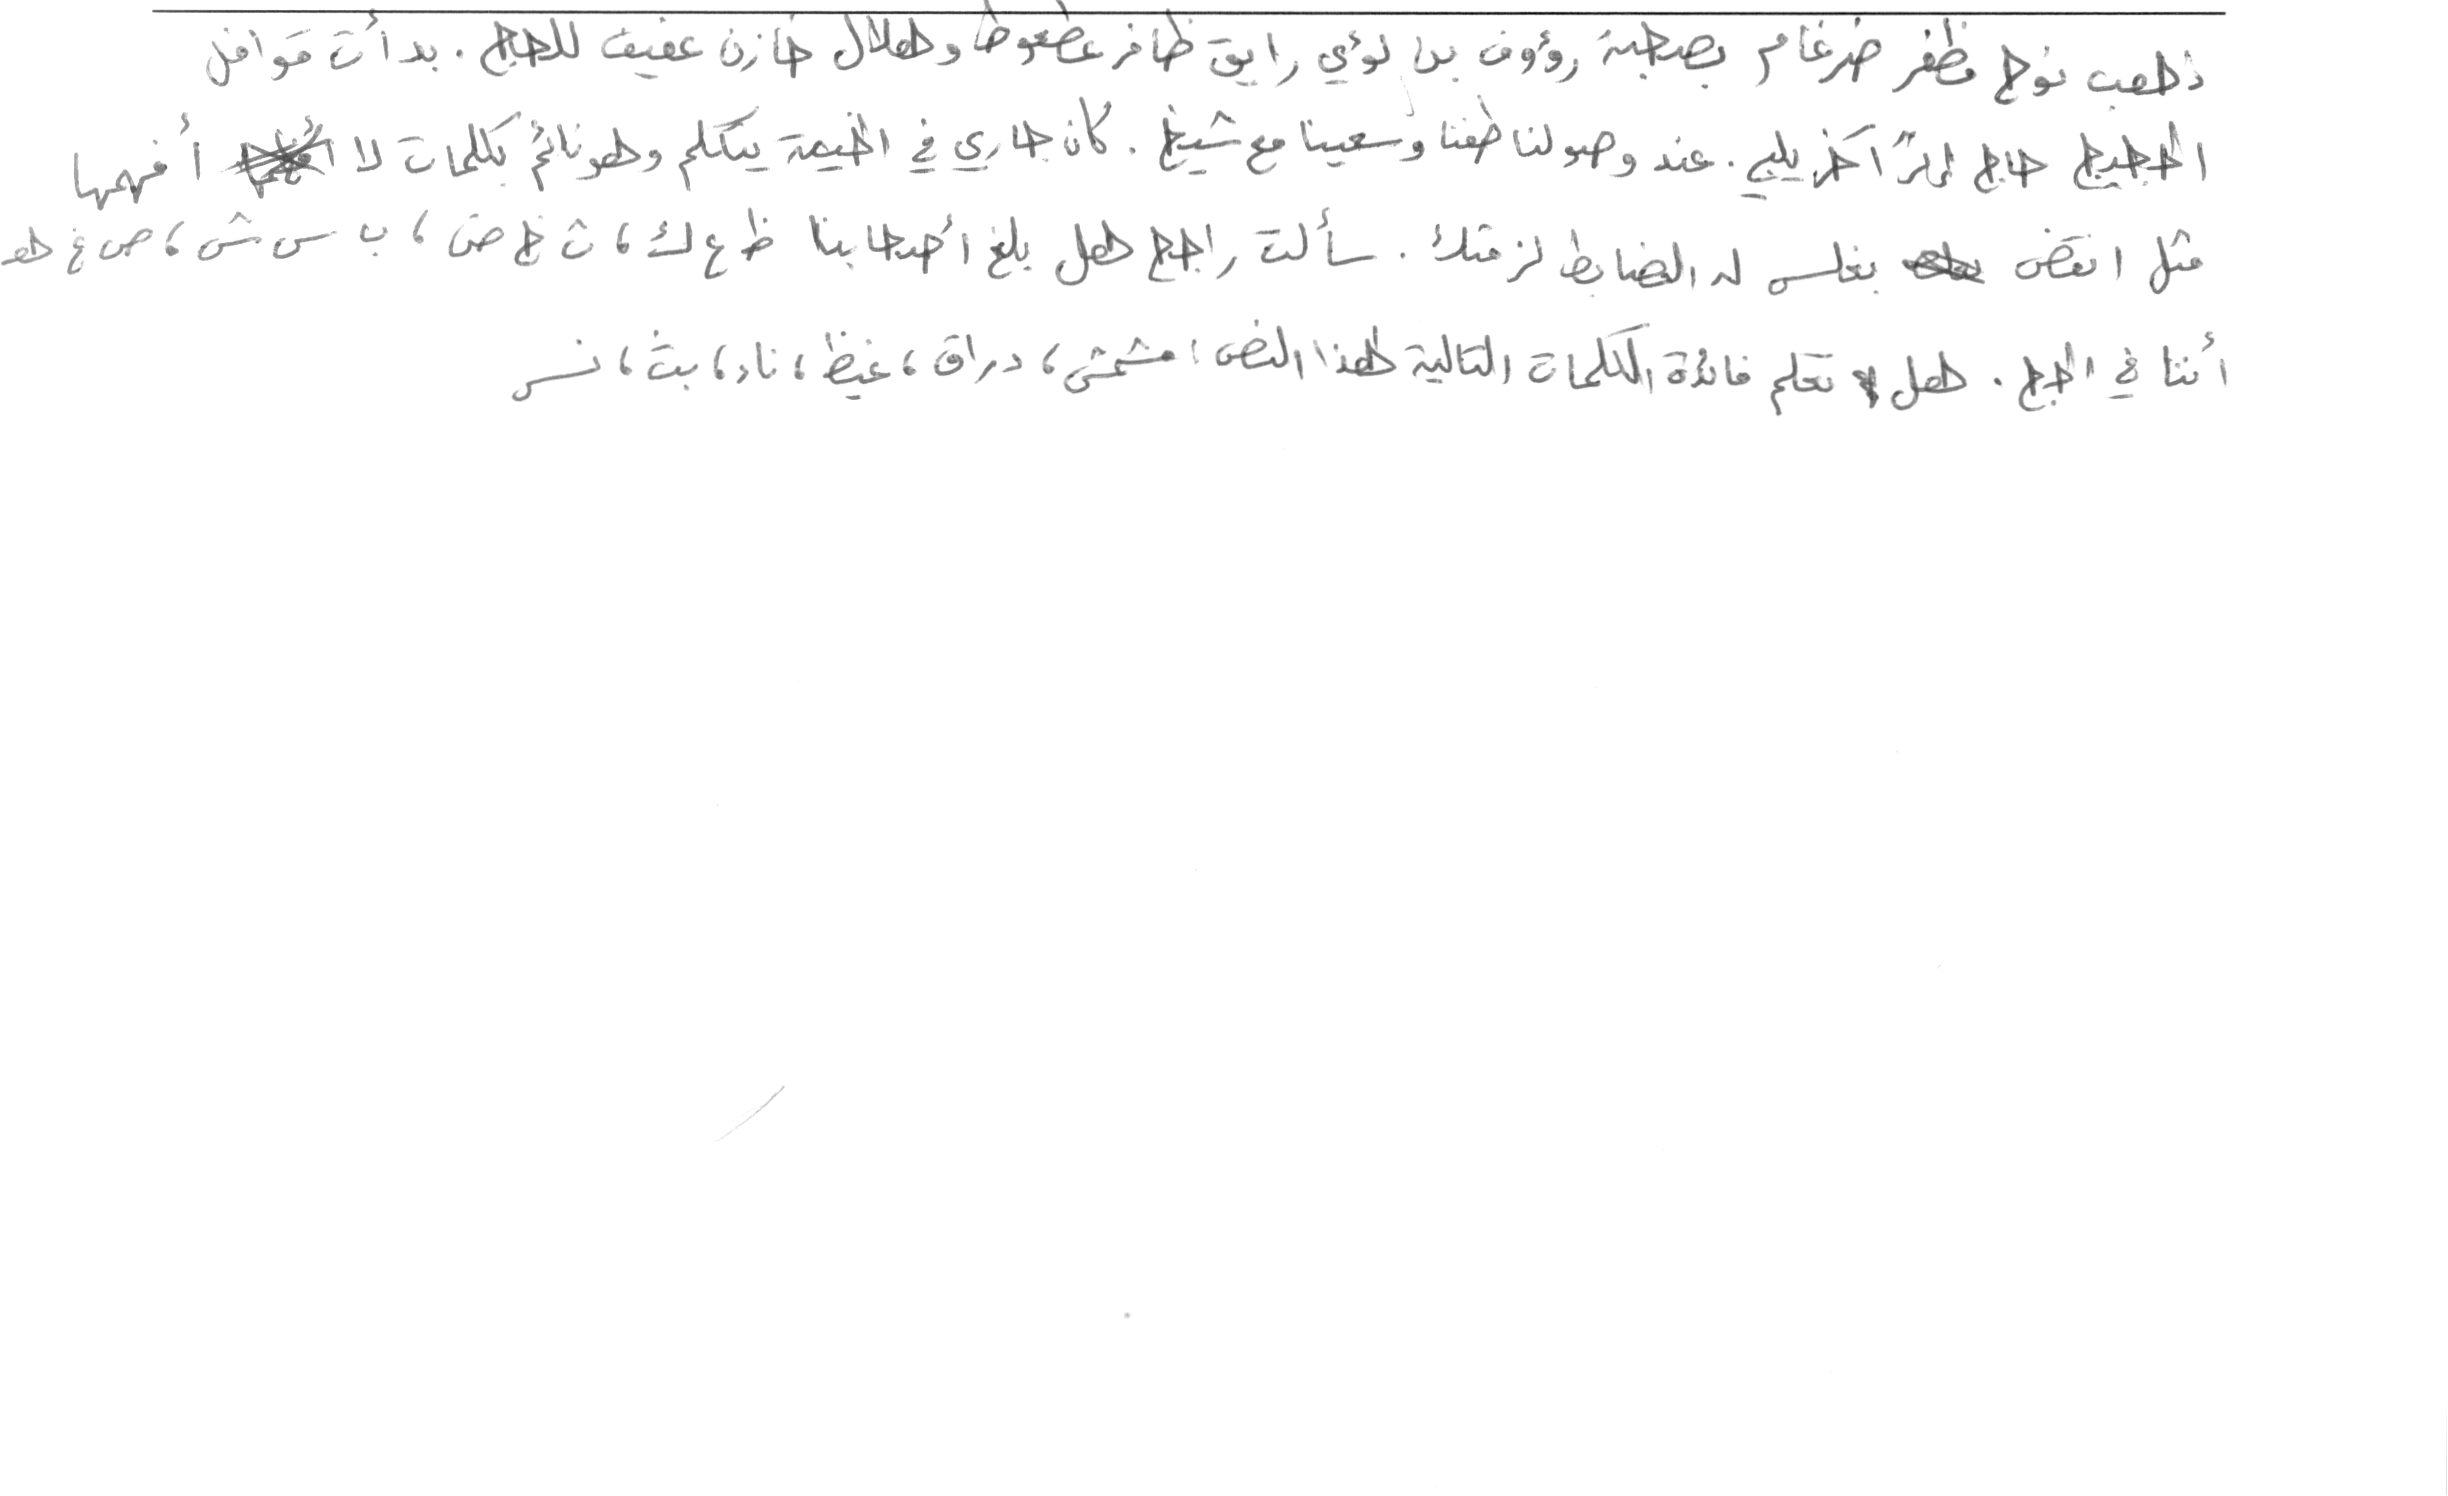 ذهب نوح مظفر ضرغام بصحبة رؤوف بن لؤي رايق ظافر عطعوط وهلال خازن عفيف للحج. بدأت قوافل
الحجيج حاج إثر آخر تلبي. عند وصولنا طفنا وسعينا مع شيخ. كان جاري في الخيمة يتكلم وهو نائم بكلمات لا أفهمها
مثل انقض بغلس له الضابط لزمتك. سألت راجح هل بلغ أصحابنا ظ ع ك، ث خ ض، ب س ش، ص غ هـ
أننا في الحج. هل تعلم فائدة الكلمات التالية لهذا النص: مشمش، دراق، غيظ، نار، بث، نسر